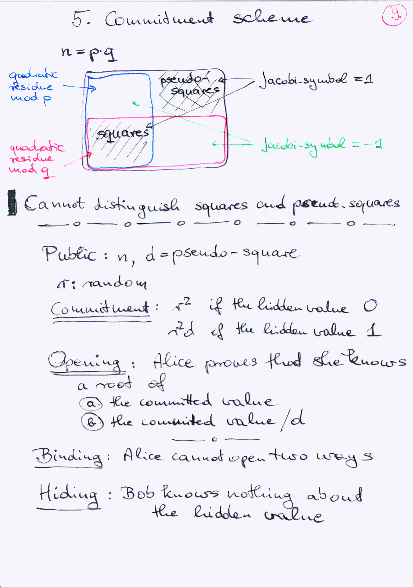 5. Commitment scheme
9.
n = p·q
quadratic
residue
mod p
pseudo-
squares
Jacobi-symbol = 1
squares
quadratic
residue
mod q
Jacobi-symbol = -1
Cannot distinguish squares and pseudo-squares
Public : n, d = pseudo-square
r : random
Commitment : r² if the hidden value 0
r²d if the hidden value 1
Opening : Alice proves that she knows
a root of
(a) the committed value
(b) the commited value / d
Binding : Alice cannot open two ways
Hiding : Bob knows nothing about
the hidden value